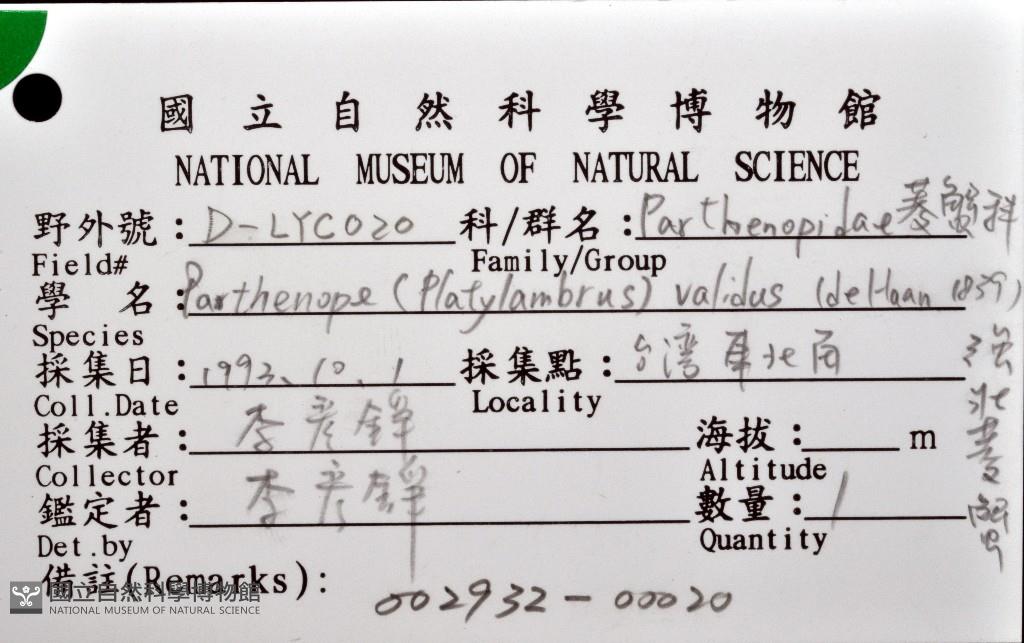 國立自然科學博物館
NATIONAL MUSEUM OF NATURAL SCIENCE
野外號：D-LYC020 科/群名：Parthenopidae 菱蟹科
Field# Family/Group
學名：Parthenope (Platylambrus) validus (deHaan 1839)
Species
採集日：1993、10、1 採集點：台灣東北角
Coll.Date Locality
強壯菱蟹
採集者：李彥錚 海拔： m
Collector Altitude
鑑定者：李彥錚 數量：1
Det.by Quantity
備註(Remarks)：
002932-00020
國立自然科學博物館
NATIONAL MUSEUM OF NATURAL SCIENCE